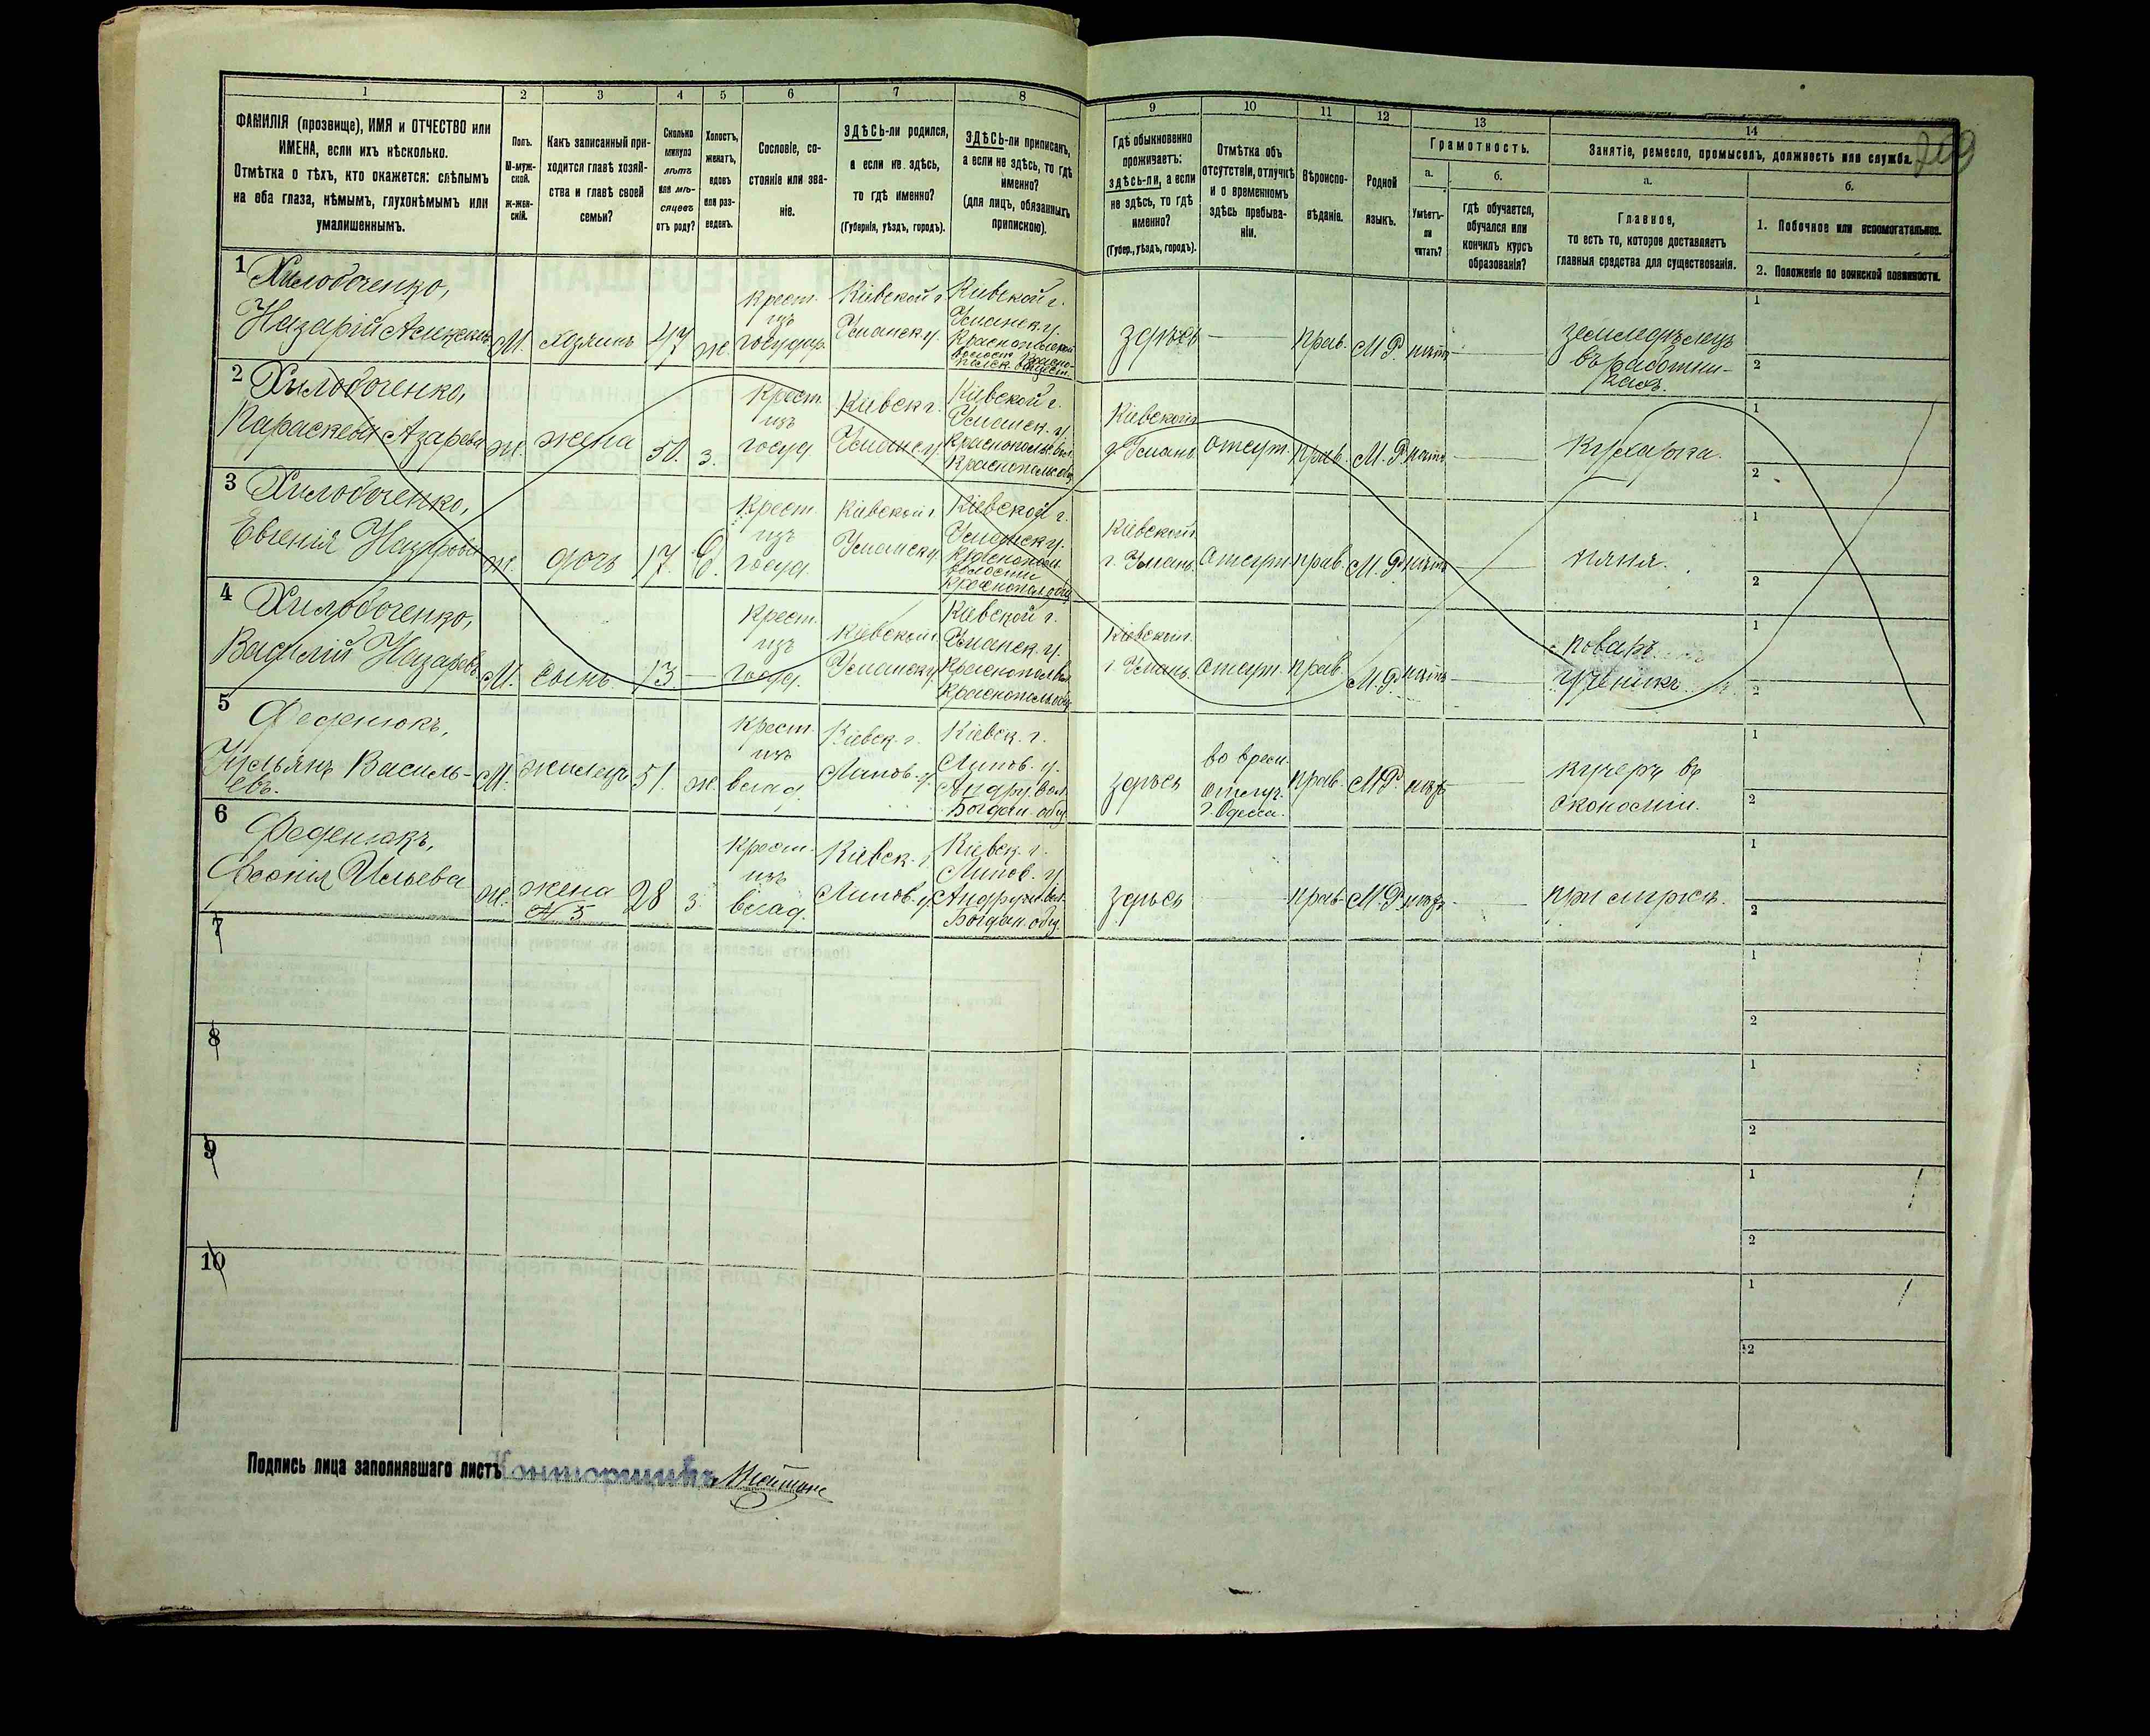 1 2 3 4 5 6 7 8
ФАМИЛІЯ (прозвище), ИМЯ и ОТЧЕСТВО или
ИМЕНА, если ихъ нѣсколько.
Отмѣтка о тѣхъ, кто окажется: слѣпымъ
на оба глаза, нѣмымъ, глухонѣмымъ или
умалишеннымъ.
Полъ.
М-муж-
ской.
Ж-жен-
скій.
Какъ записанный при-
ходится главѣ хозяй-
ства и главѣ своей
семьи?
Сколько
минуло
лѣтъ
или мѣ-
сяцевъ
отъ роду?
Холостъ,
женатъ,
вдовъ
или раз-
веденъ.
Сословіе, со-
стояніе или зва-
ніе.
ЗДѢСЬ-ли родился,
а если не здѣсь,
то гдѣ именно?
(Губернія, уѣздъ, городъ).
ЗДѢСЬ-ли приписанъ,
а если не здѣсь, то гдѣ
именно?
(для лицъ, обязанныхъ
припискою).
9 10 11 12 13 14
Гдѣ обыкновенно
проживаетъ:
здѣсь-ли, а если
не здѣсь, то гдѣ
именно?
(Губер., уѣздъ, городъ).
Отмѣтка объ
отсутствіи, отлучкѣ
и о временномъ
здѣсь пребыва-
ніи.
Вѣроиспо-
вѣданіе.
Родной
языкъ.
Грамотность.
а.
Умѣетъ-
ли
читать?
б.
гдѣ обучается,
обучался или
кончилъ курсъ
образованія?
Занятіе, ремесло, промыселъ, должность или служба.
а.
Главное,
то есть то, которое доставляетъ
главныя средства для существованія.
б.
1. Побочное или вспомогательное.
2. Положеніе по воинской повинности.
1 Хилобоченко,
Назарій
М. хозяинъ 47 ж.
Крест.
изъ
государ.
Кіевской г.
Уманск. у.
Кіевской г.
Уманск. у.
здѣсь — прав. М.Р. нѣтъ —
земледѣлецъ
въ работни-
кахъ.
2 Хилобоченко,
Параскева Азарева
ж. жена 50. з.
Крест.
изъ
госуд.
Кіевск. г.
Уманск. у.
Кіевской г.
Уманск. у.
Краснопольск. вол.
Краснопольск. общ.
Кіевской г.
г. Умань. отсут. прав. М.Р. нѣтъ —
кухарка.
3 Хилобоченко,
Евгенія
ж. дочь 17.
Крест.
изъ
госуд.
Кіевской г.
Уманск. у.
Кіевской г.
Уманск. у.
волости
Кіевской г.
г. Умань. отсут. прав. М.Р. нѣтъ —
няня.
4 Хилобоченко,
Василій Назаревъ
М. сынъ. 13. —
Крест.
изъ
госуд.
Кіевской г.
Уманск. у.
Кіевской г.
Уманск. у.
Краснопол. вол.
Краснопольск. общ.
Кіевской г.
г. Умань. отсут. прав. М.Р. нѣтъ —
поваръ
ученикъ.
5 Феденюкъ,
Ульянъ Василь-
евъ.
М. жилецъ 51. ж.
Крест.
изъ
влад.
Кіевск. г.
Липов. у.
Кіевск. г.
Липов. у.
Андруш. вол.
Богдан. общ.
здѣсь
во врем.
отлуч.
г. Одесса.
прав. М.Р. нѣтъ —
кучеръ въ
экономіи.
6 Феденюкъ,
Ѳеонія Ильева
ж. жена
№ 5
28 з.
Крест.
изъ
влад.
Кіевск. г.
Липов. у.
Кіевск. г.
Липов. у.
Андруш. вол.
Богдан. общ.
здѣсь прав. М.Р. нѣтъ —
при мужѣ.
7
8
9
10
Подпись лица заполнявшаго листъ Конторщикъ